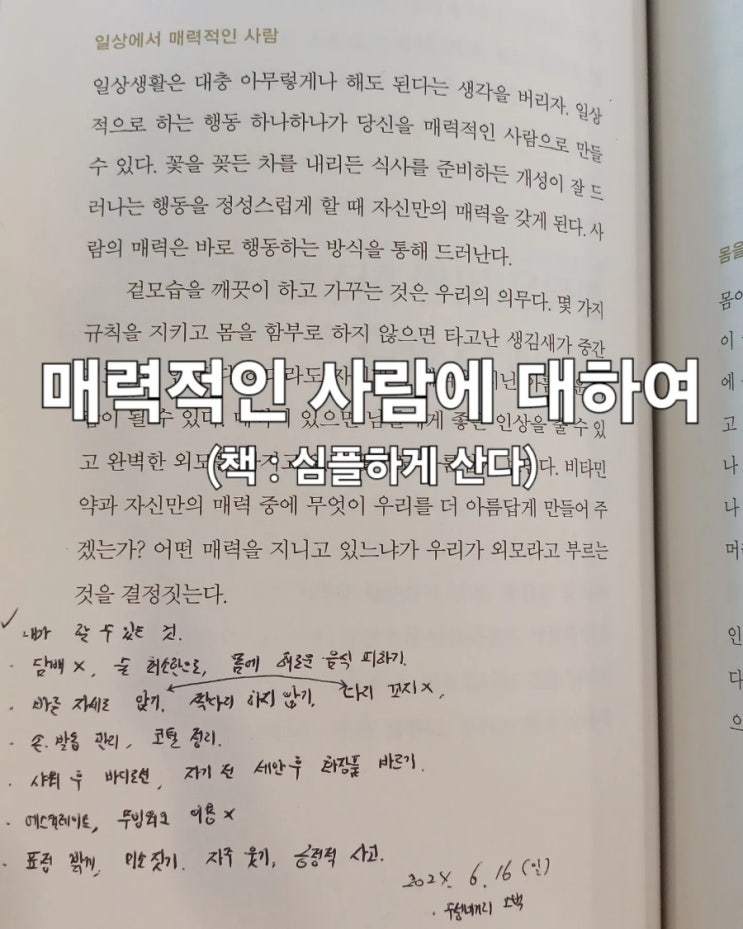 일상에서 매력적인 사람
일상생활은 대충 아무렇게나 해도 된다는 생각을 버리자. 일상
적으로 하는 행동 하나하나가 당신을 매력적인 사람으로 만들
수 있다. 꽃을 꽂든 차를 내리든 식사를 준비하든 개성이 잘 드
러나는 행동을 정성스럽게 할 때 자신만의 매력을 갖게 된다. 사
람의 매력은 바로 행동하는 방식을 통해 드러난다.
겉모습을 깨끗이 하고 가꾸는 것은 우리의 의무다. 몇 가지
규칙을 지키고 몸을 함부로 하지 않으면 타고난 생김새가 중간
매력적인 사람에 대하여
이 될 수 있다. 있으면 좋은 인상을 줄 수 있
(책 : 심플하게 산다)
고 완벽한 비타민
약과 자신만의 매력 중에 무엇이 우리를 더 아름답게 만들어 주
겠는가? 어떤 매력을 지니고 있느냐가 우리가 외모라고 부르는
것을 결정짓는다.
✓ 내가 할 수 있는 것.
· 담배 x, 술 최소한으로, 몸에 해로운 음식 피하기.
· 바른 자세로 앉기, 짝다리 하지 않기, 다리 꼬지 x,
· 손.발톱 관리, 코털 정리.
· 샤워 후 바디로션, 자기 전 세안 후 화장품 바르기.
· 에스컬레이트, 무빙워크 이용 x
· 표정 밝게, 미소 짓기. 자주 웃기, 긍정적 사고.
2024. 6. 16 (일)
몸을
몸이
이
에
고
나
나
머
인
다
으